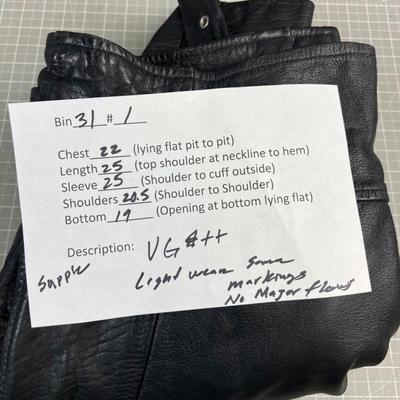 Bin 31 # 1
Chest 22 (lying flat pit to pit)
Length 25 (top shoulder at neckline to hem)
Sleeve 25 (Shoulder to cuff outside)
Shoulders 20.5 (Shoulder to Shoulder)
Bottom 19 (Opening at bottom lying flat)
Description: VG ++
Supple Light wear Some
markings
No Major flaws